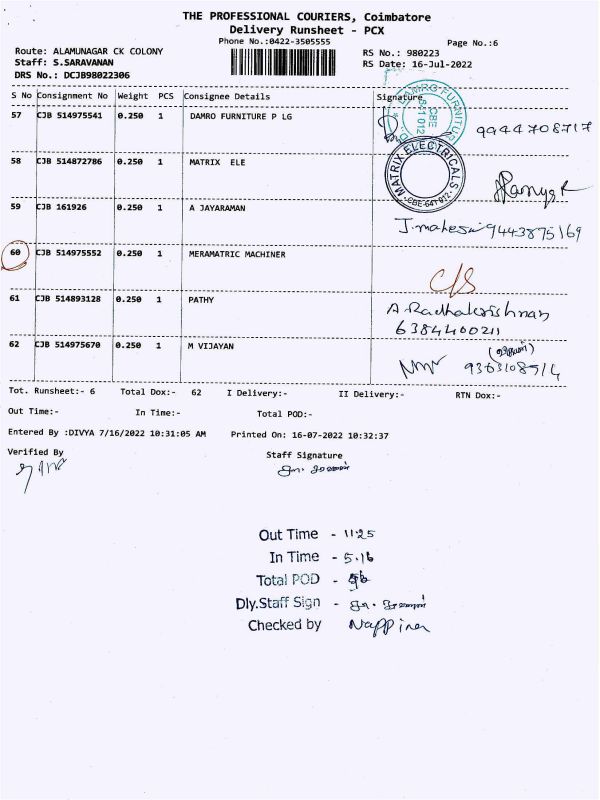 THE PROFESSIONAL COURIERS, Coimbatore
Delivery Runsheet - PCX
Phone No.:0422-3505555
Page No.:6
Route: ALAMUNAGAR CK COLONY
RS No.: 980223
Staff: S.SARAVANAN
RS Date: 16-Jul-2022
DRS No.: DCJB98022306
S No Consignment No Weight PCS Consignee Details Signature
57 CJB 514975541 0.250 1 DAMRO FURNITURE P LG 9944708717
DAMRO FURNITURE CBE 641 012
58 CJB 514872786 0.250 1 MATRIX ELE
MATRIX ELECTRICALS CBE-641 012
59 CJB 161926 0.250 1 A JAYARAMAN
J. mahesw 9443875169
60 CJB 514975552 0.250 1 MERAMATRIC MACHINER
C/S
61 CJB 514893128 0.250 1 PATHY A Radhakrishnan
6384400211
62 CJB 514975670 0.250 1 M VIJAYAN
Tot. Runsheet:- 6 Total Dox:- 62 I Delivery:- II Delivery:- RTN Dox:-
Out Time:- In Time:- Total POD:-
Entered By :DIVYA 7/16/2022 10:31:05 AM Printed On: 16-07-2022 10:32:37
Verified By Staff Signature
Out Time - 11.25
In Time - 5.16
Total POD -
Dly.Staff Sign -
Checked by